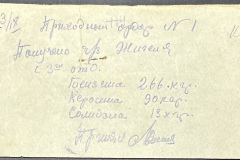 Приходный ордер № 1
Получено от Жигеля
с 3го отд.
Бензина 266 кгр.
Керосина 90 кгр.
Солидола 13 кгр.
Принял